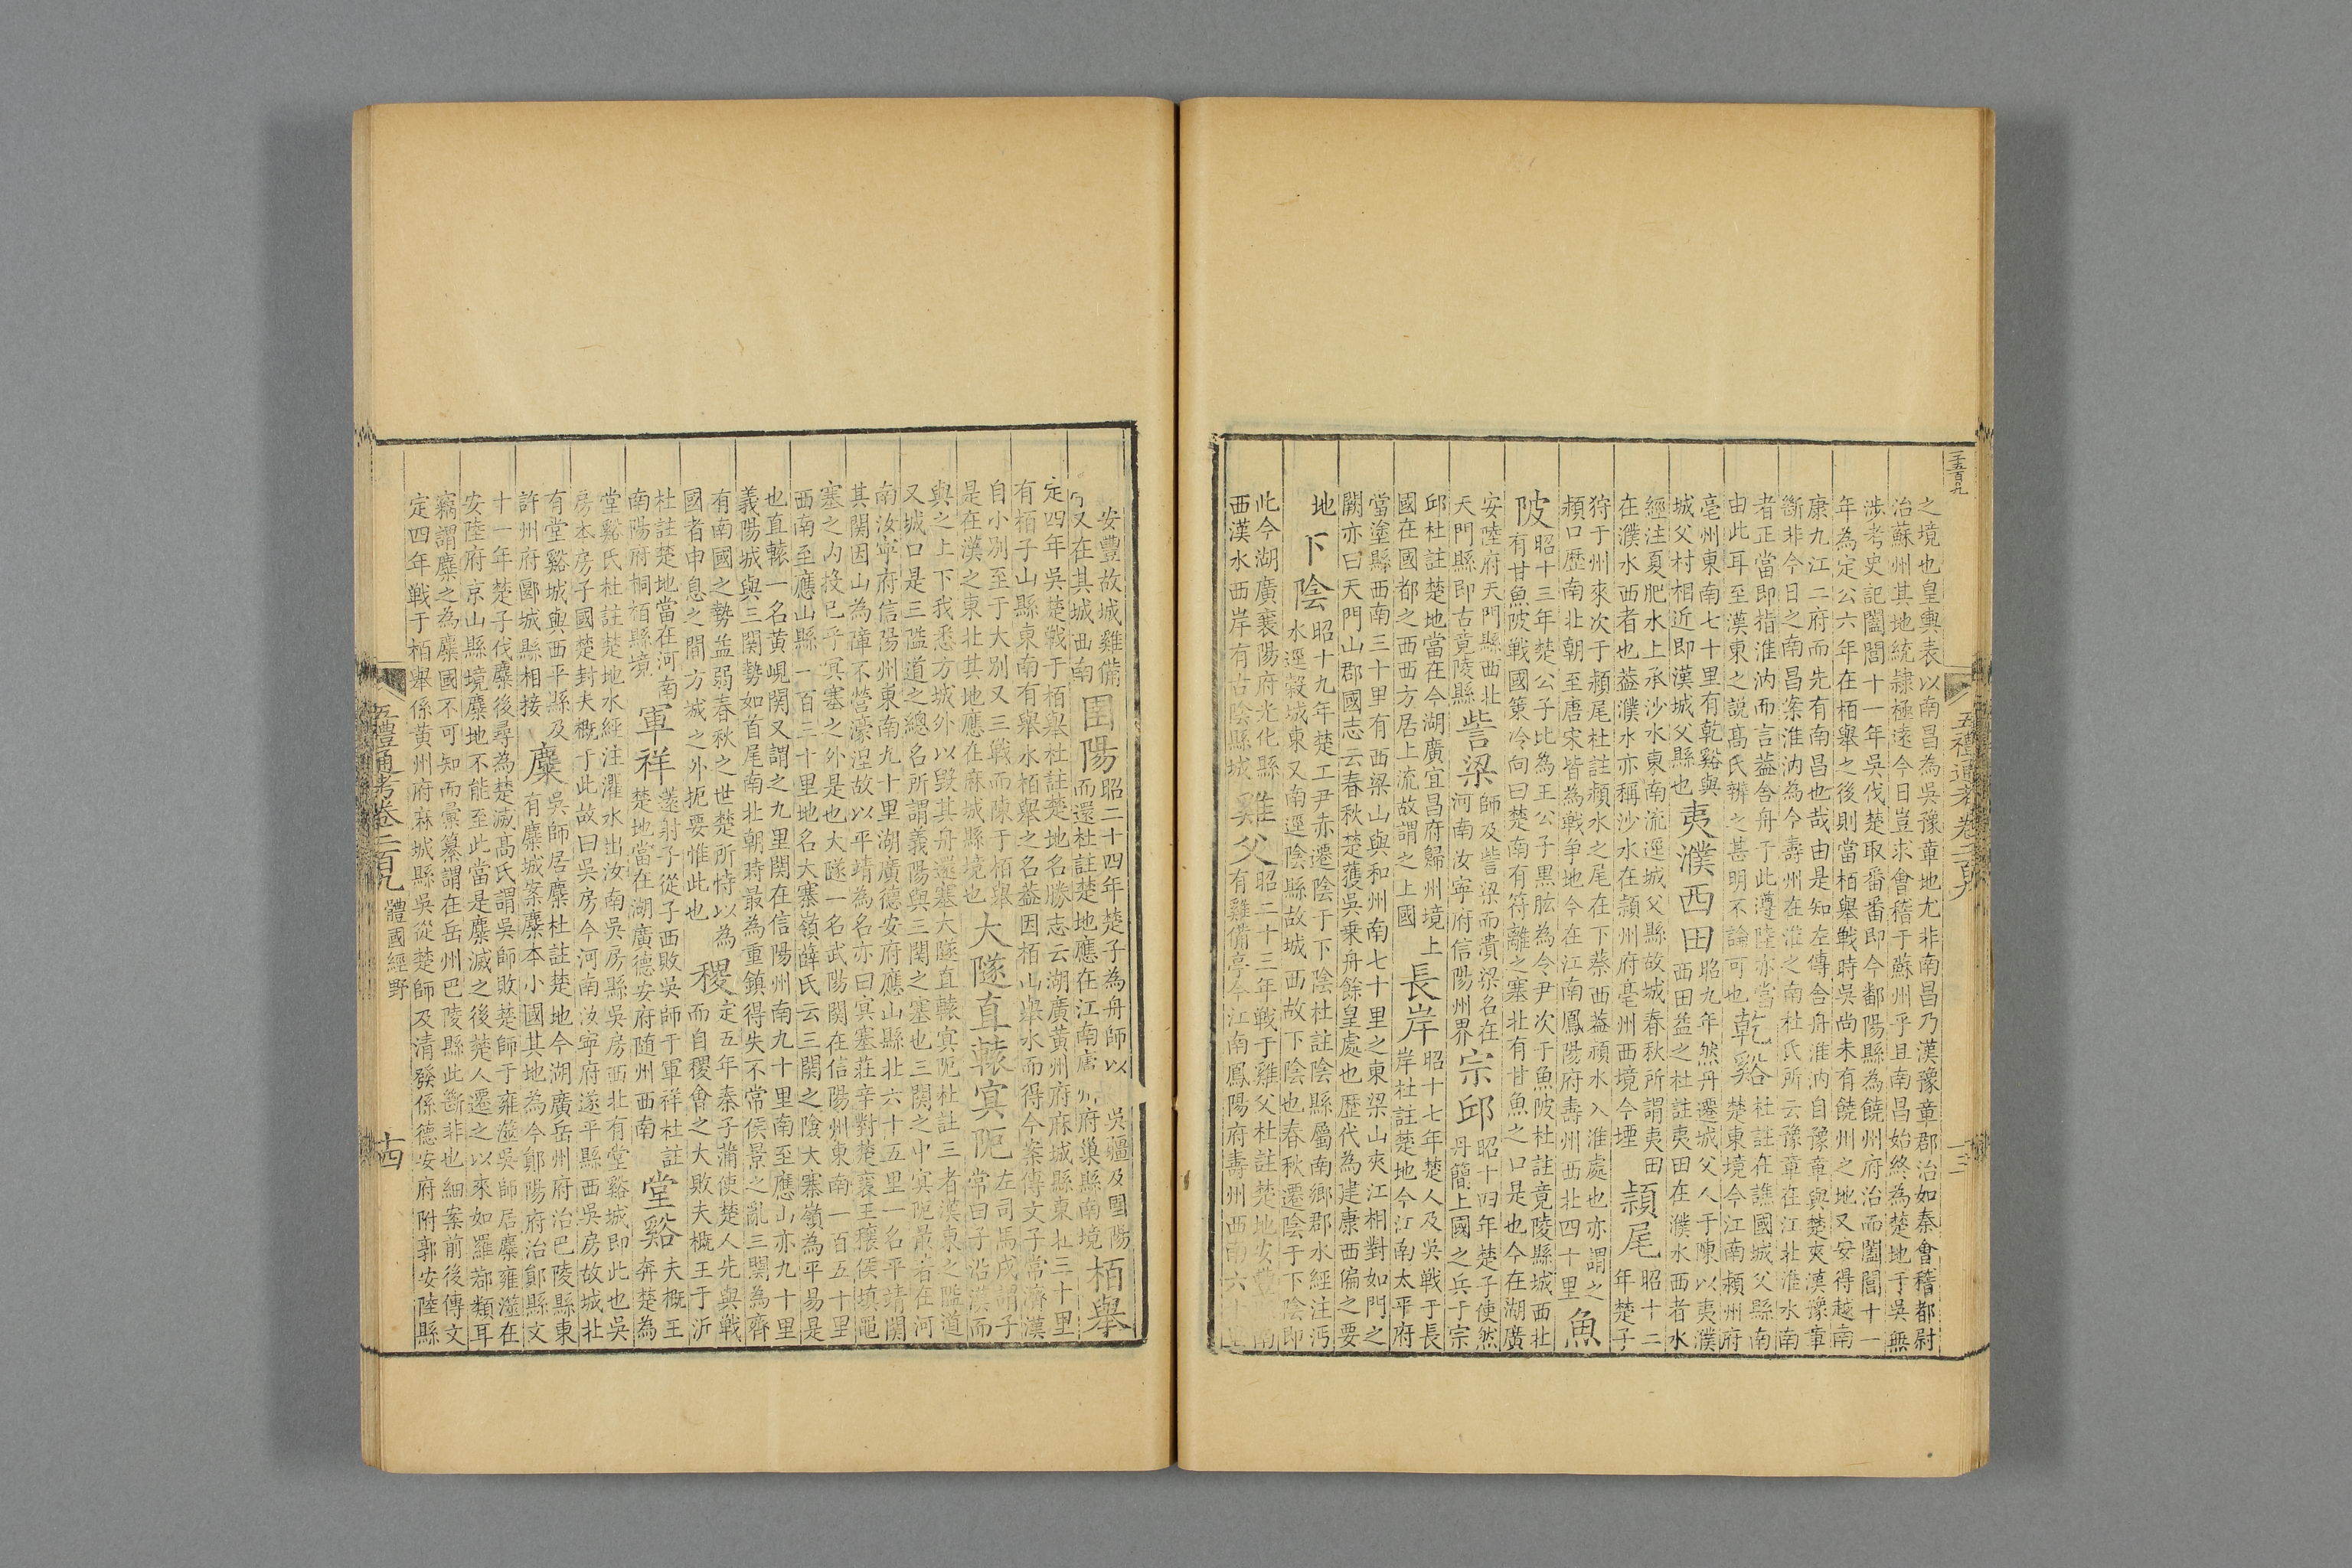 二千五百九
五禮通考卷二百九
十三
之境也皇輿表以南昌為吳豫章地尤非南昌乃漢豫章郡治如秦會稽都尉
治蘇州其地統隸極遠今日豈求會稽于蘇州乎且南昌始終為楚地于吳無
涉考史記闔閭十一年吳伐楚取番番即今鄱陽縣為饒州府治而闔閭十一
年為定公六年在栢舉之後則當栢舉戰時吳尚未有饒州之地又安得越南
康九江二府而先有南昌也哉由是知左傳舍舟淮汭自豫章與楚夾漢豫章
斷非今日之南昌案淮汭為今壽州在淮之南杜氏所云豫章在江北淮水南
者正當即指淮汭而言葢舍舟于此遵陸亦當
由此耳至漢東之說髙氏辨之甚明不論可也
乾谿
杜註在譙國城父縣南
楚東境今江南潁州府
亳州東南七十里有乾谿與
城父村相近即漢城父縣也
夷濮西田
昭九年然丹遷城父人于陳以夷濮
西田益之杜註夷田在濮水西者水
經注夏肥水上承沙水東南流逕城父縣故城春秋所謂夷田
在濮水西者也葢濮水亦稱沙水在潁州府亳州西境今堙
潁尾
昭十二
年楚子
狩于州來次于潁尾杜註潁水之尾在下蔡西葢潁水入淮處也亦謂之
潁口歷南北朝至唐宋皆為戰争地今在江南鳳陽府壽州西北四十里
魚
陂
昭十三年楚公子比為王公子黑肱為令尹次于魚陂杜註竟陵縣城西北
有甘魚陂戰國策冷向曰楚南有符離之塞北有甘魚之口是也今在湖廣
安陸府天門縣西北
天門縣即古竟陵縣
訾梁
師及訾梁而貴梁名在
河南汝寧府信陽州界
宗邱
昭十四年楚子使然
丹簡上國之兵于宗
邱杜註楚地當在今湖廣宜昌府歸州境上
國在國都之西西方居上流故謂之上國
長岸
昭十七年楚人及吳戰于長
岸杜註楚地今江南太平府
當塗縣西南三十里有西梁山與和州南七十里之東梁山夾江相對如門之
闕亦曰天門山郡國志云春秋楚獲吳乗舟餘皇處也歷代為建康西偏之要
地
下陰
昭十九年楚工尹赤遷陰于下陰杜註陰縣屬南鄉郡水經注沔
水逕穀城東又南逕陰縣故城西故下陰也春秋遷陰于下陰即
此今湖廣襄陽府光化縣
西漢水西岸有古陰縣城
雞父
昭二十三年戰于雞父杜註楚地安豐縣南
有雞備亭今江南鳳陽府壽州西南六
安豐故城雞備
又在其城西南
圉陽
昭二十四年楚子為舟師以
吳疆及圉陽
而還杜註楚地應在江南廬州府巢縣南境
栢舉
定四年吳楚戰于栢舉杜註楚地名勝志云湖廣黃州府麻城縣東北三十里
有栢子山縣東南有舉水栢舉之名葢因栢山舉水而得今案傳文子常濟漢
自小別至于大別又三戰而陳于栢舉
是在漢之東北其地應在麻城縣境也
大隧直轅冥阨
左司馬戍謂子
常曰子沿漢而
與之上下我悉方城外以毀其舟還塞大隧直轅冥阨杜註三者漢東之隘道
又城口是三隘道之總名所謂義陽與三關之塞也三關之中冥阨最著在河
南汝寧府信陽州東南九十里湖廣德安府應山縣北六十五里一名平靖關
其關因山為障不營濠湟故以平靖為名亦曰冥塞莊辛對楚襄王穰侯填黽
塞之内投已乎冥塞之外是也大隧一名武陽關在信陽州東南一百五十里
西南至應山縣一百二十里地名大寨嶺薛氏云三關之險大寨嶺為平易是
也直轅一名黄峴關又謂之九里關在信陽州南九十里南至應山亦九十里
義陽城與三關勢如首尾南北朝時最為重鎮得失不常侯景之亂三關為齊
有南國之勢益弱春秋之世楚所恃以為
國者申息之間方城之外扼要惟此也
稷
定五年秦子蒲使楚人先與戰
而自稷會之大敗夫概王于沂
杜註楚地當在河南
南陽府桐栢縣境
軍祥
薳射子從子西敗吳師于軍祥杜註
楚地當在湖廣德安府隨州西南
堂谿
夫概王
奔楚為
堂谿氏杜註楚地水經注灈水出汝南吳房縣吳房西北有堂谿城即此也吳
房本房子國楚封夫概于此故曰吳房今河南汝寧府遂平縣西吳房故城北
有堂谿城與西平縣及
許州府郾城縣相接
麇
吳師居麇杜註楚地今湖廣岳州府治巴陵縣東
有麇城案麇本小國其地為今鄖陽府治鄖縣文
十一年楚子伐麇後尋為楚滅髙氏謂吳師敗楚師于雍澨吳師居麇雍澨在
安陸府京山縣境麇地不能至此當是麇滅之後楚人遷之以來如羅鄀類耳
竊謂麇之為麇國不可知而彙纂謂在岳州巴陵縣此斷非也細案前後傳文
定四年戰于栢舉係黄州府麻城縣吳從楚師及清發係德安府附郭安陸縣
五禮通考卷二百九 體國經野
十四